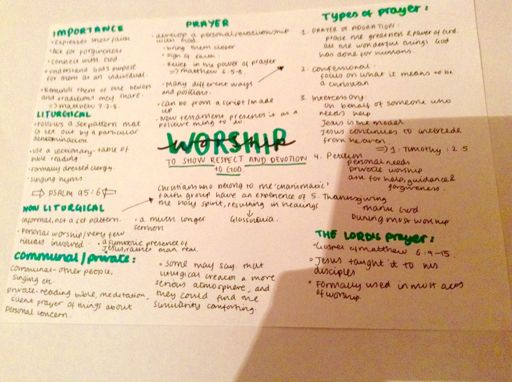 IMPORTANCE
• Expresses their faith
• Ask for forgiveness
• Connect with God
• Understand God's purpose for them as an individual.
• Remind them of the beliefs and traditions they share.
LITURGICAL
• Follows a set pattern that is set out by a particular denomination
• Use a lectionary - table of bible reading
• Formally dressed clergy
• Singing hymns
⇨ PSALM 95:6
NON LITURGICAL
Informal, not a set pattern.
• Personal worship / very few rituals involved
• a much longer sermon
• a symbolic presence of Jesus, rather than real.
Communal/private:
Communal - other people, singing etc
private - reading bible, meditation, silent prayer of things about personal concern.
PRAYER
• develop a personal relationship with God.
• bring them closer
• sign of faith
• Believe in the power of prayer
⇒ Matthew 6:5-8.
• Many different ways and positions.
• Can be from a script / made up
• New testament presents it as a
WORSHIP
TO SHOW RESPECT AND DEVOTION TO GOD.
Christians who belong to the 'charismatic' faith group have an experience of the holy spirit, resulting in healings
Glossolalia.
• Some may say that liturgical creates a more serious atmosphere, and they could find the similarity comforting.
Types of prayer:
1. PRAYER OF ADORATION:
praise the greatness & power of God.
All the wonderful things God has done for humans.
2. Confessional:
Focus on what it means to be a christian
3. Intercessory:
On behalf of someone who needs help
Jesus is the model
Jesus continues to intercede from heaven
⇒ 1 Timothy 2:5
4. Petition
personal needs
private worship
ask for help, guidance, forgiveness.
5. Thanksgiving
thank God
During most worship
THE LORDS prayer:
• Gospel of Matthew 6:9-15
• Jesus taught it to his disciples
• Formally used in most acts of worship.